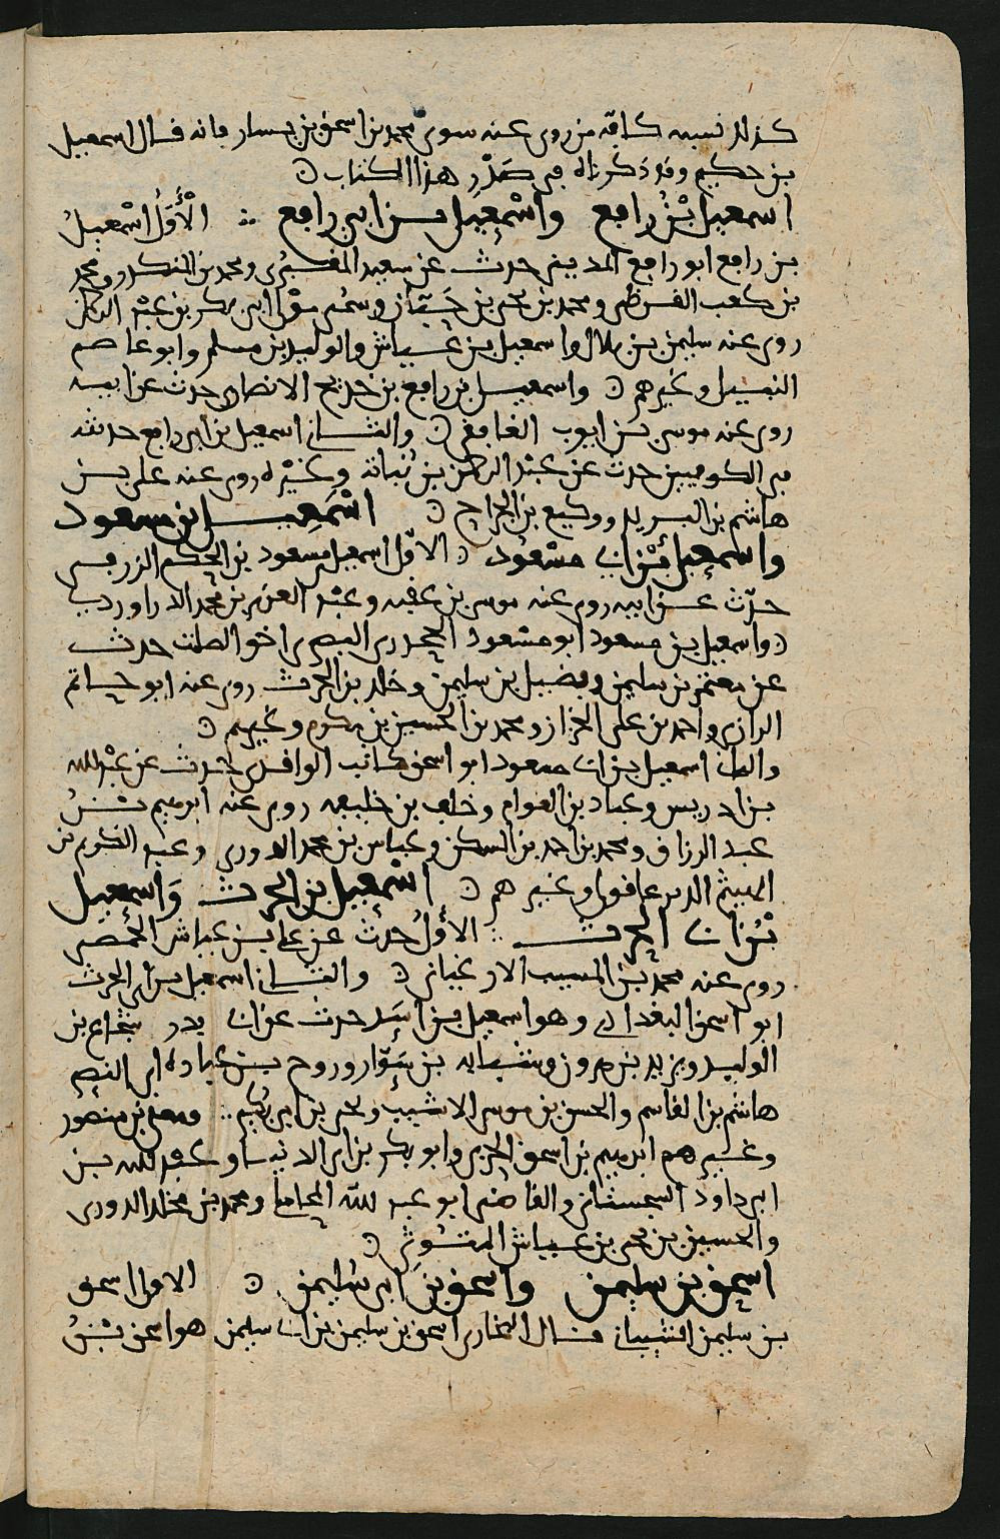 كذلك نسبه كافة من روى عنه سوى محمد بن اسحق بن يسار فانه قال اسمعيل
بن حكيم وقد ذكرناه في صَدْر هذا الكتاب
اسمعيل بْنُ رافع واسْمعيل بن ابي رافع الْأَوَّلُ اسْمعيلُ
بن رافع ابو رافع المديني حدث عن سعيد المقبري ومحمد بن المنكدر ومحمد
بن كعب القرظي ومحمد بن يحيى بن حَبّان وسُمَي مَوْلى ابي بكر بن عبْد الرحمن
روى عنه سليمن بن بلال واسمعيل بن عياش والوليد بن مسلم وابو عاصم
النبيل وغيرهم واسمعيل بن رافع بن خديج الانصاري حدث عن ابيه
روى عنه موسى بن ايوب الغافقي والثاني اسمعيل بن ابي رافع حديثه
في الكوفيين حدث عن عبْد الرحمن بن نُباتة وغيْره روى عنه علي بن
هاشم بن البريد ووكيع بن الجراح اسْمعيل بن مسعود
واسمعيل بْن ابي مسْعُود الاوّل اسمعيل بن مسعود بن الحكم الزرقي
حدّث عن ابيه روى عنه موسى بن عقبه وعبْد العزيز بن محمد الدراوردي
واسمعيل بن مسعود ابو مسْعود الجحدري البصري اخو الصلت حدث
عن معتمر بن سليمن وفضيل بن سليمن وخلد بن الحرث روى عنه ابو حاتم
الرازي واحمد بن علي الخزاز ومحمد بن الحسين بن مكرم وغيرهم
والثاني اسمعيل بن ابي مسعود ابو اسحق كاتب الواقدي حدث عن عبْد الله
بن ادريس وعباد بن العوام وخلف بن خليفه روى عنه ابرهيم بْنُ
عبد الرزاق ومحمد بن احمد بن السكن وعباس بن محمد الدوري وعبد الكريم بن
الهيثم الدير عاقولي وغيرهم اسْمعيل بن الحرث وَاسمعيل
بْنُ ابي الحرث الأوّلُ حدث عن علي بن عياش الحمصي
روى عنه محمد بن المسيب الارغياني والثاني اسمعيل بن ابي الحرث
ابو اسحق البغدادي وهو اسمعيل بن اسَد حدث عن ابي بدر شجاع بن
الوليد ويزيد بن هرون وشبابه بن سَوّار وروح بن عباده وابي النصر
هاشم بن القاسم والحسن بن موسى الاشيب ويحيى بن ابي بُكير ومعلى بن منصُور
وغيرهم ابرهيم بن اسحق الحربي وابو بكر بن ابي الدنيا وعبْد الله بن
ابي داود السجستاني والقاضي ابو عبد الله المحاملي ومحمد بن مخلد الدوري
والحسين بن يحيى بن عياش المتُّوثي
اسحق بن سليمن واسحق بن ابي سُليمن الاول اسحق
بن سليمن الشيباني قال البخاري اسحق بن سليمن بن ابي سليمن هو اسحق بْنُ